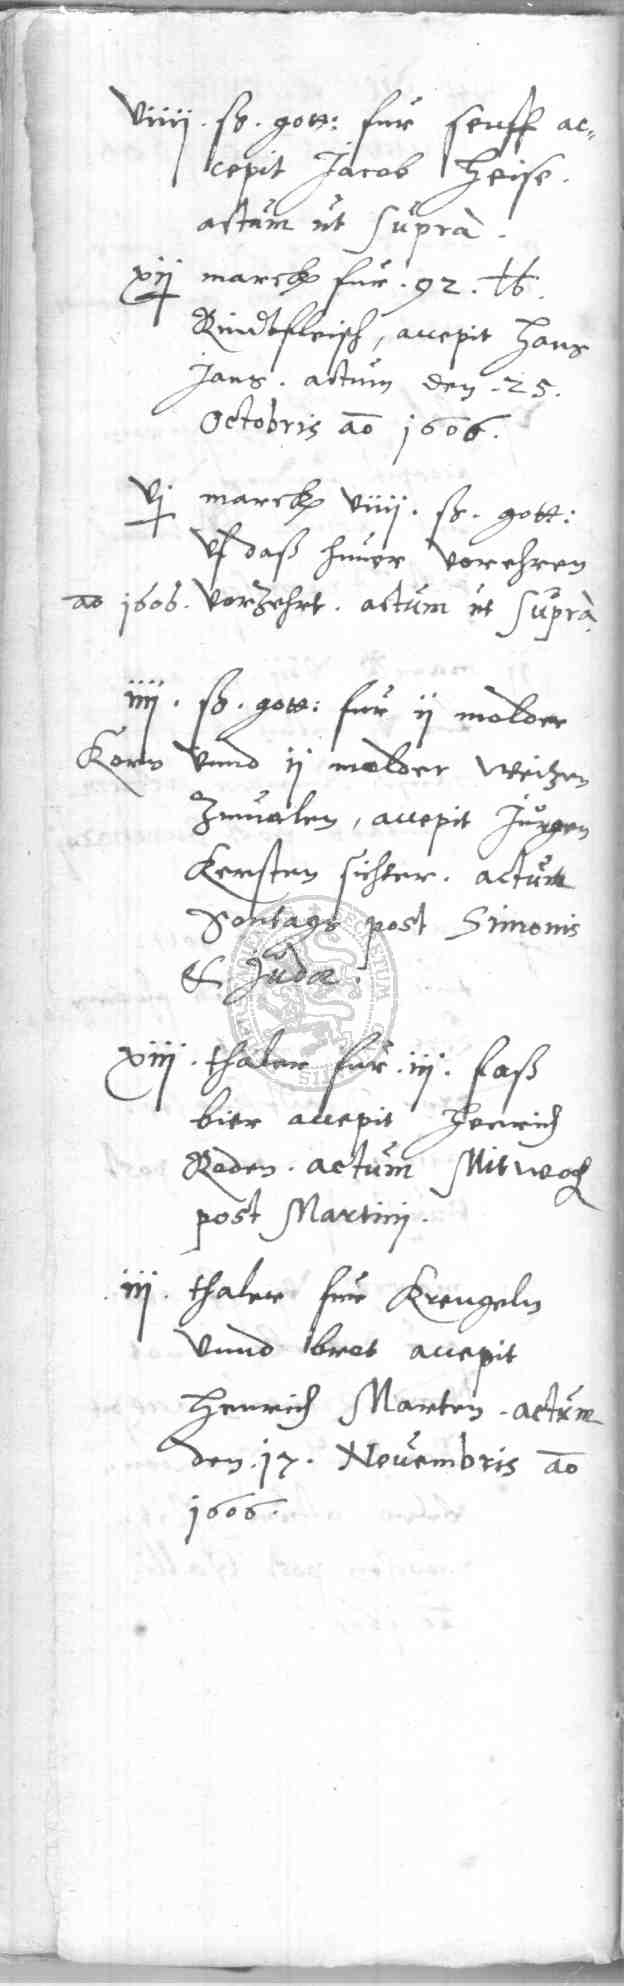 viiii. ß. gott: fur senff ac=
cepit Jacob Heise.
actum ut supra.
xij marck fur. 92. lb.
Rindtfleisch, accepit Hans
Jans. actum den. 25.
Octobris ao 1606.
vj marck viiii. ß. gott:
Uf daß huuer vorehren
ao 1606. vorzehrt. actum ut supra.
iiij. ß. gott: fur ij molder
Korn vnnd ij molder weitzen
Zumalen, accepit Jurgen
Kersten sichter. actum
Sontags post Simonis
& Judæ.
xiij. thaler fur. iij. faß
bier accepit Henrich
Roden. actum Mitwoch
post Martinj.
iij. thaler fur Krengeln
vnnd brot accepit
Henrich Marten. actum
den. 17. Nouembris ao
1606.